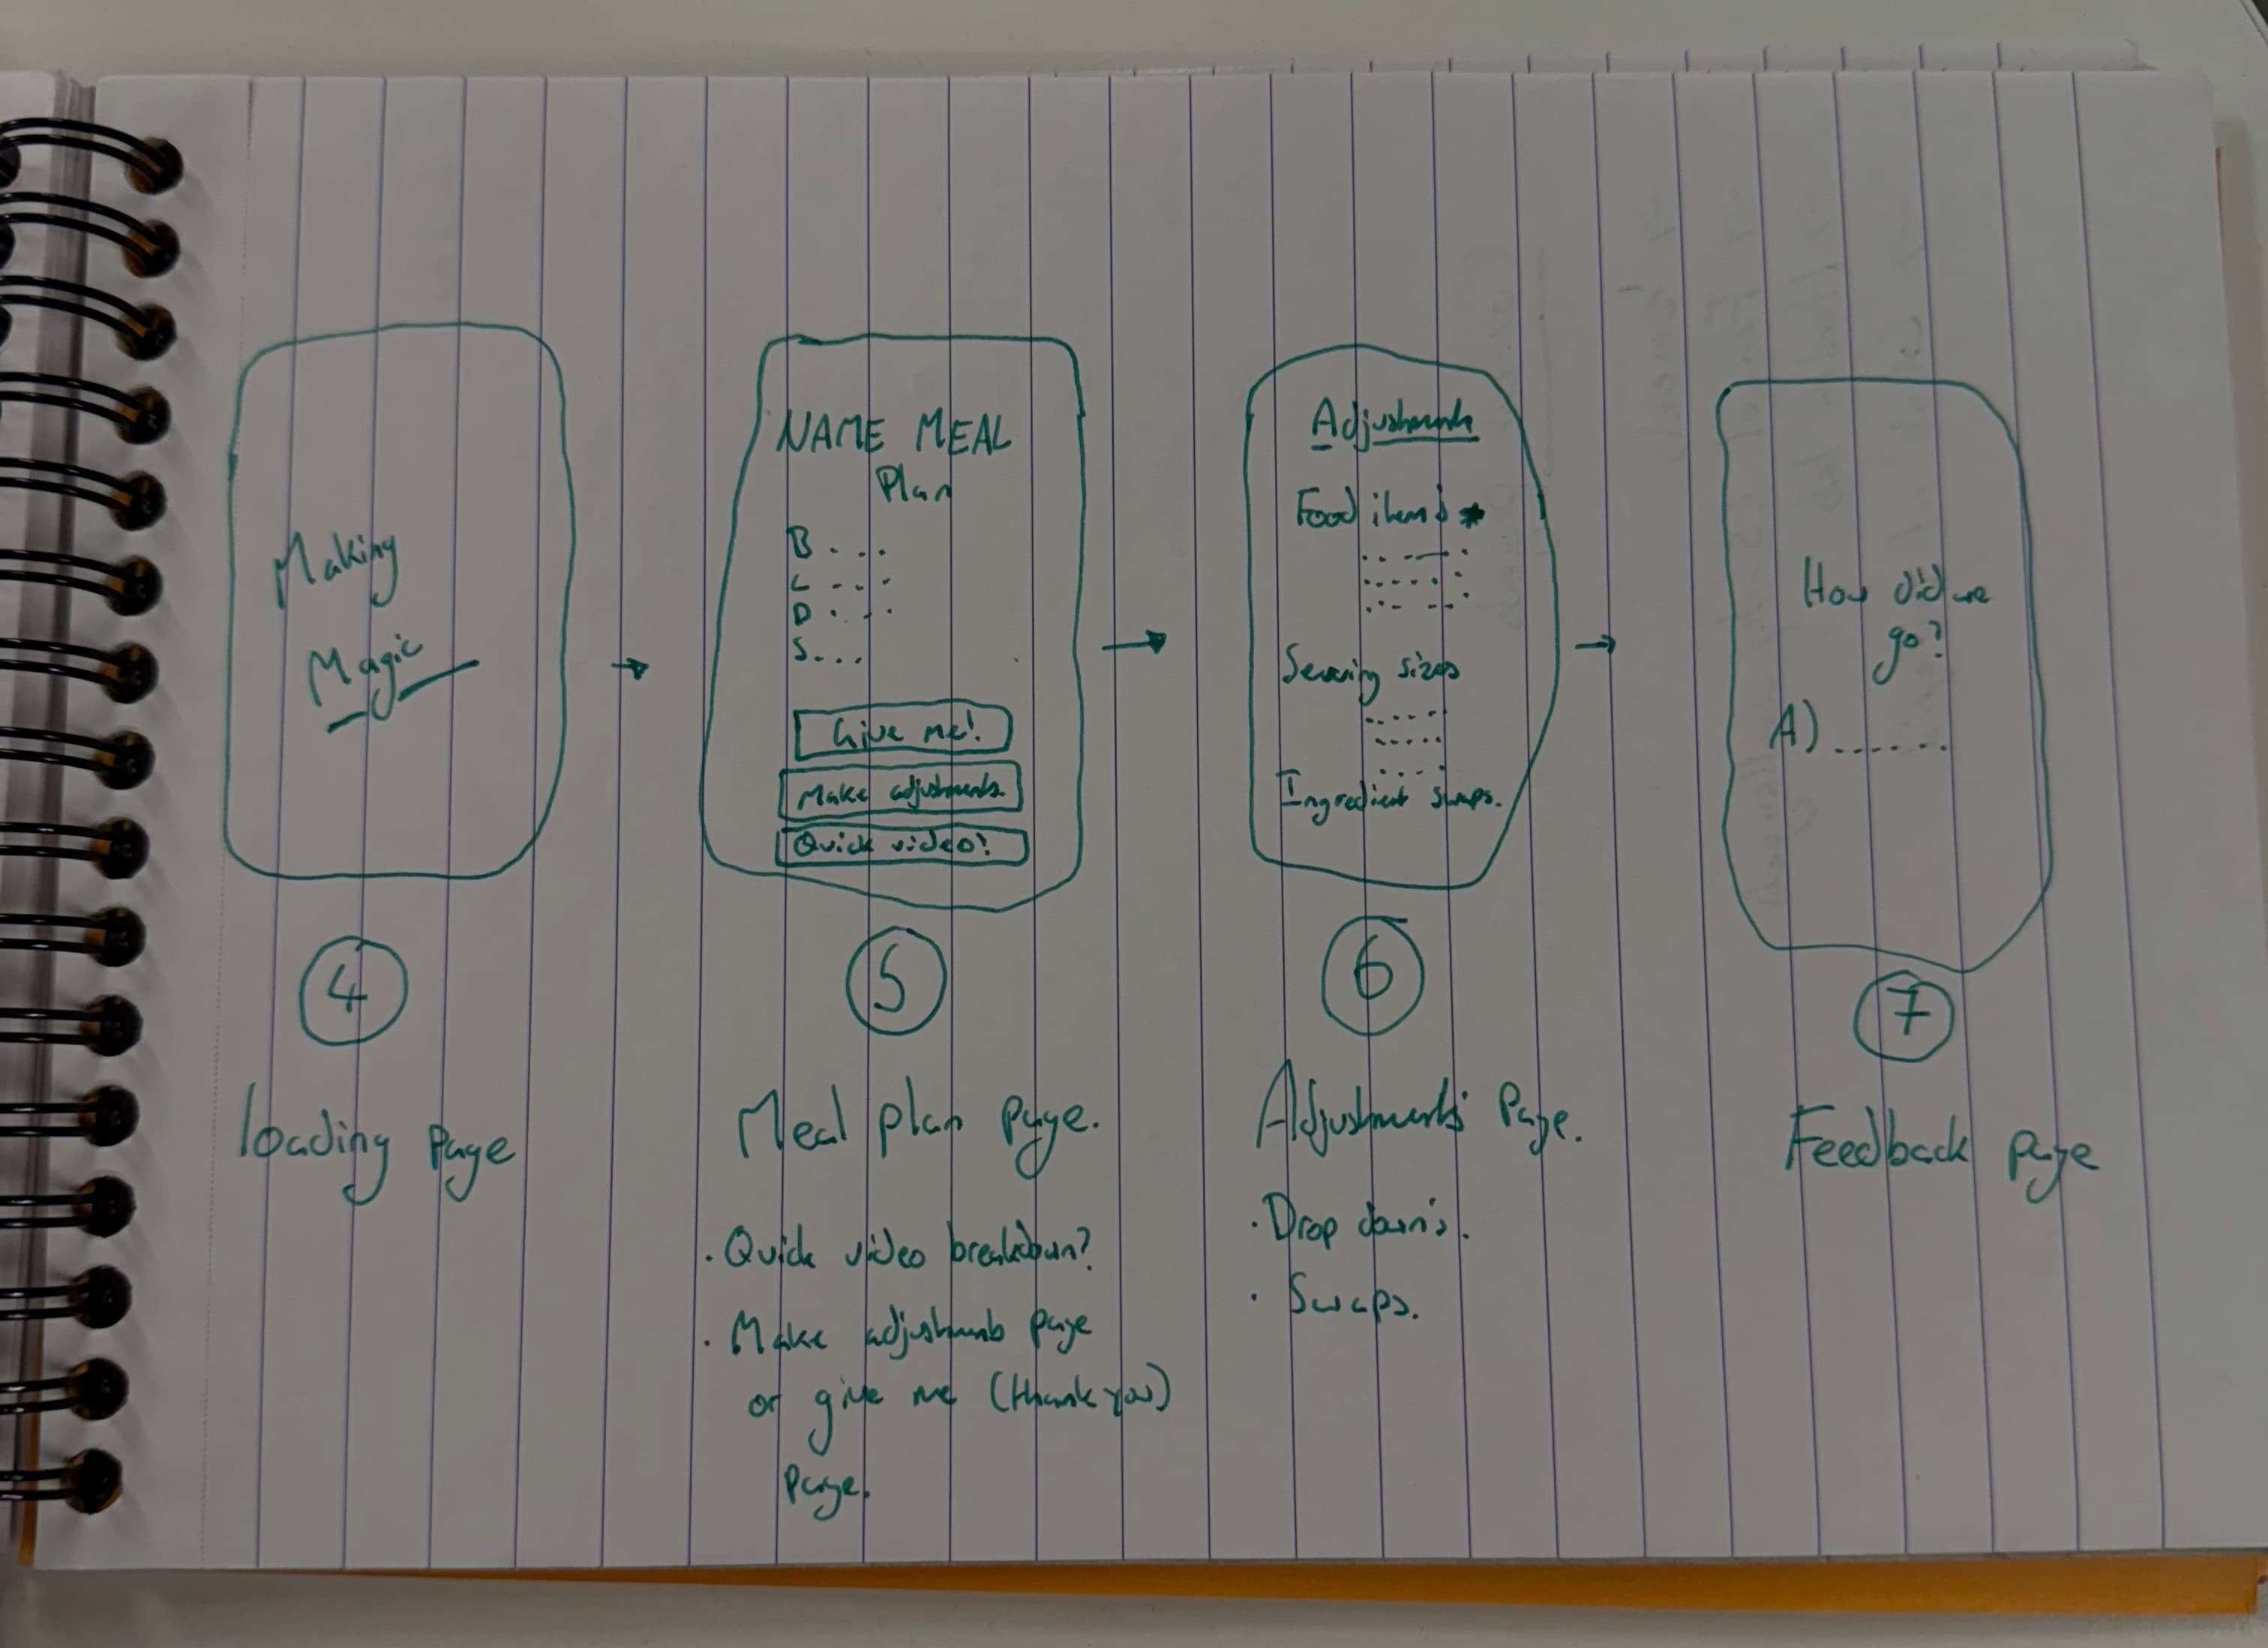 Making
Magic
4
loading page
NAME MEAL
Plan
B . . .
L . . .
D . . .
S . . .
Give me!
Make adjustments.
Quick video?
5
Meal plan page.
· Quick video breakdown?
· Make adjustments page
or give me (thank you)
page.
Adjustments
Food items *
Serving sizes
Ingredient swaps.
6
Adjustments Page.
· Drop down's.
· Swaps.
How did we
go?
A) . . . . . .
7
Feedback page